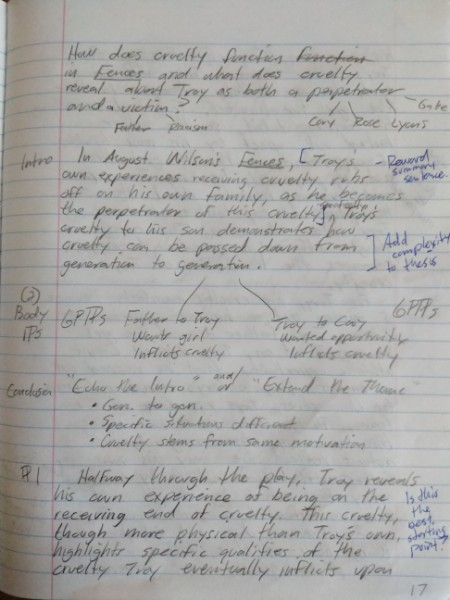 How does cruelty function function
in Fences and what does cruelty
reveal about Troy as both a perpetrator
and a victim?
Gabe
Father Racism
Cory Rose Lyons
Intro
In August Wilson's Fences, [Troy's
own experiences receiving cruelty rubs
off on his own family, as he becomes
the perpetrator of this cruelty;] Troy's
cruelty to his son demonstrates how
cruelty can be passed down from
generation to generation.
- Reword
summary
sentence.
] Add
complexity
to thesis
(2)
Body
¶s
6PTPs
Father to Troy
Wants girl
Inflicts cruelty
Troy to Cory
Wanted opportunity
Inflicts cruelty
6PTPs
Conclusion
"Echo the Intro" and/or "Extend the Theme"
• Gen. to gen.
• Specific situations different
• Cruelty stems from same motivation
¶1
Halfway through the play, Troy reveals
his own experience of being on the
receiving end of cruelty. This cruelty,
though more physical than Troy's own,
highlights specific qualities of the
cruelty Troy eventually inflicts upon
Is this
the
best
starting
point?
17